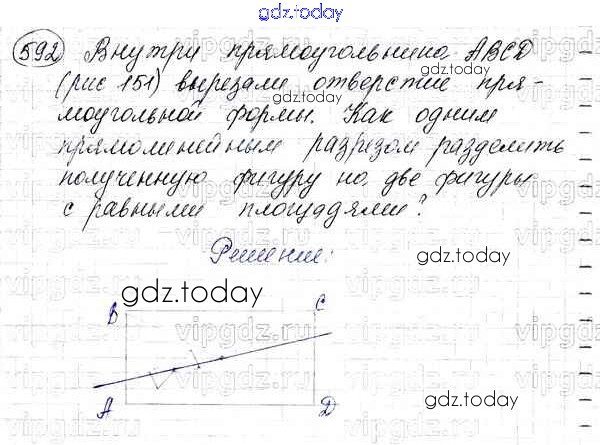 gdz.today
592 Внутри прямоугольника ABCD
gdz.today
(рис 151) вырезали отверстие пря-
gdz.today
моугольной формы. Как одним
прямолинейным разрезом разделить
полученную фигуру на две фигуры
с равными площадями?
Решение:
gdz.today
gdz.today
B C
A D
gdz.today
vipgdz.ru